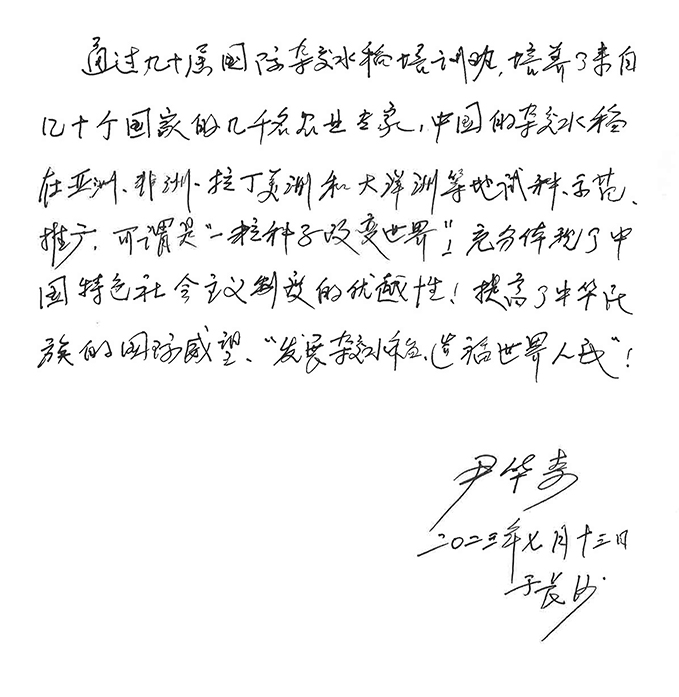 通过九十届国际杂交水稻培训班，培养了来自
几十个国家的几千名农业专家，中国的杂交水稻
在亚洲、非洲、拉丁美洲和大洋洲等地试种、示范、
推广，可谓是“一粒种子改变世界”！充分体现了中
国特色社会主义制度的优越性！提高了中华民
族的国际威望、“发展杂交水稻，造福世界人民”！
尹华奇
二〇二三年七月十三日
于长沙